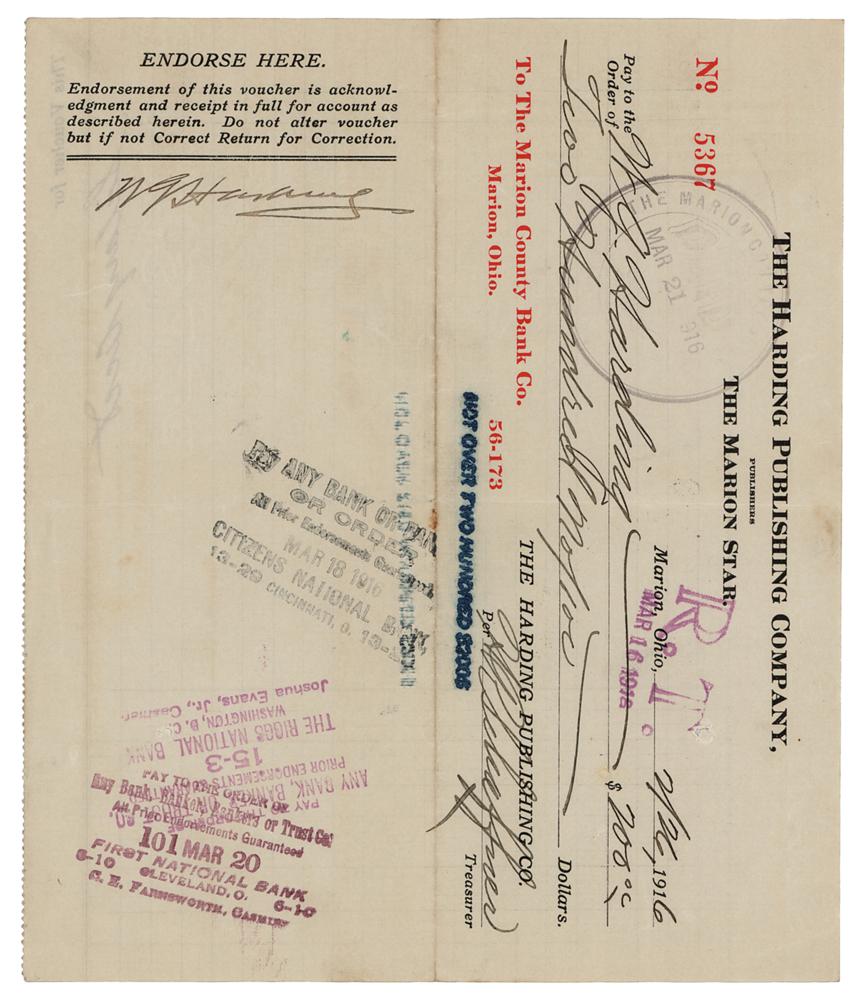 ENDORSE HERE.
Endorsement of this voucher is acknowl-
edgment and receipt in full for account as
described herein. Do not alter voucher
but if not Correct Return for Correction.
W G Harding
PAY ANY BANK OR
OR ORDER
All Prior Endorsements
MAR 18 1916
CITIZENS NATIONAL BANK
13-29 CINCINNATI, O. 13-
ANY BANK, BANKER
PRIOR ENDORSEMENTS
15-3
THE RIGGS NATIONAL BANK
WASHINGTON, D. C.
Joshua Evans, Jr., Cashier.
PAY TO THE ORDER OF
Any Bank, Banker or Trust Co.
All Prior Endorsements Guaranteed
101 MAR 20
FIRST NATIONAL BANK
6-10 CLEVELAND, O. 6-10
C. E. FARNSWORTH, CASHIER
THE HARDING PUBLISHING COMPANY,
PUBLISHERS
THE MARION STAR.
No 5367
THE MARION
MAR 21 1916
R. I.
Marion, Ohio, 3/16, 1916
MAR 16 1916
Pay to the
Order of W. G. Harding $ 200 00
Two Hundred No/100 Dollars.
To The Marion County Bank Co.
Marion, Ohio. 56-173
THE HARDING PUBLISHING CO.
Per
Treasurer
NOT OVER TWO HUNDRED $200$